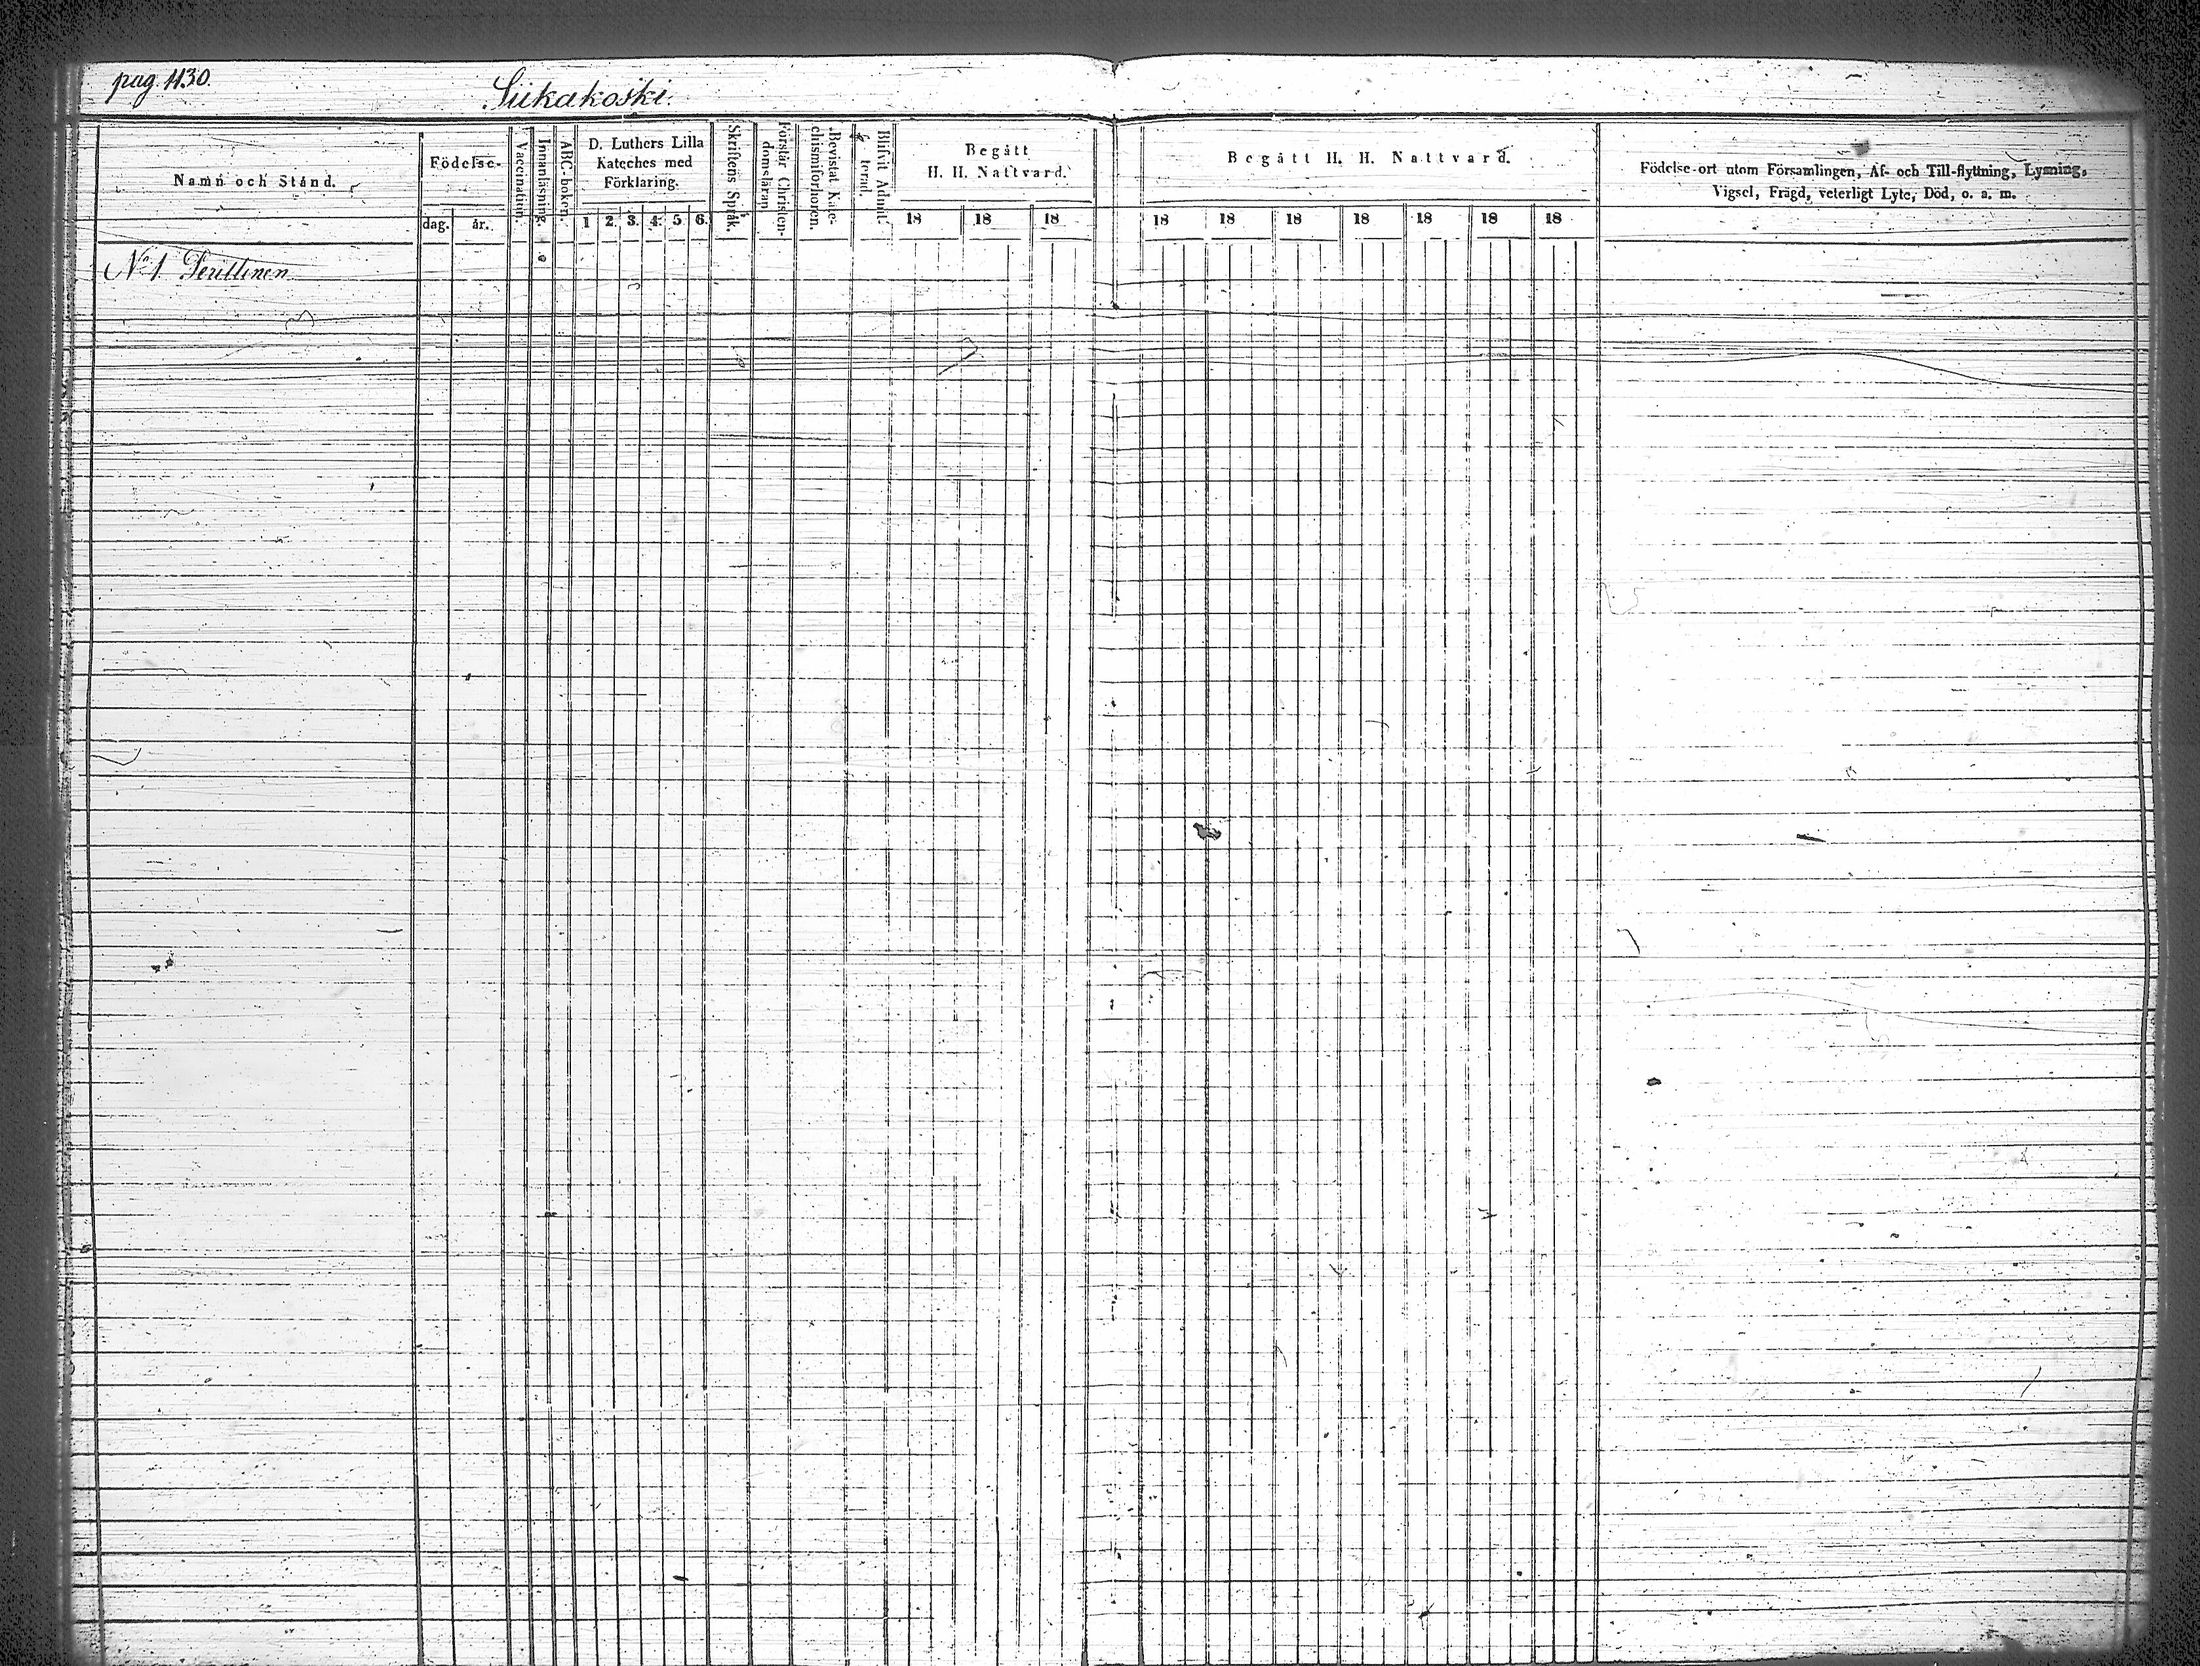 pag. 1130.
Siikakoski.
Namn och Stånd.
Födelse-
dag. år.
Vaccination.
Innanläsning.
ABC-boken.
D. Luthers Lilla
Kateches med
Förklaring.
1 2. 3. 4. 5. 6.
Skriftens Språk.
Förstår Christen-
domsläran.
Bevistat Kate-
chismiförhören.
Blifvit Admit-
terad.
Begått
H. H. Nattvard.
18 18 18
Begått H. H. Nattvard.
18 18 18 18 18 18 18
Födelse-ort utom Församlingen, Af- och Till-flyttning, Lysning,
Vigsel, Frägd, veterligt Lyte, Död, o. s. m.
No 1. Penttinen